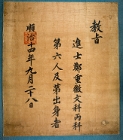 敎旨
進士鄭重徽文科丙科
第六人及第出身者
順治十四年九月二十八日